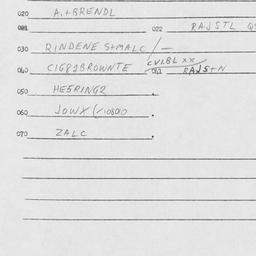 020 A.+BRENDL
021 022 RAJSTL QS
030 RINDENE S+MALC /—
040 C1GP1BROWNTE CVLBL XX 041 RAJS+N
050 HESRING2 .
060 JOWX (/10800 .
070 ZALC .